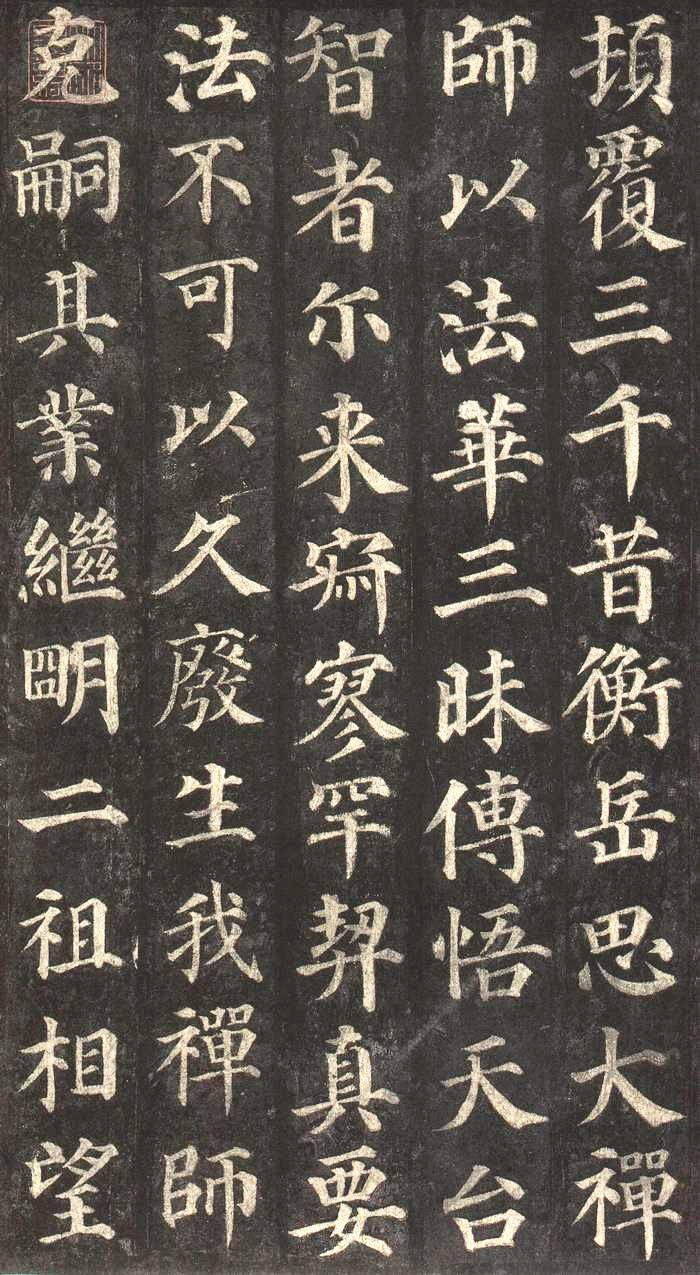 頂覆三千昔衡岳思大禪
師以法華三昧傳悟天台
智者尔来寂寥罕契真要
法不可以久廢生我禪師
克嗣其業繼明二祖相望